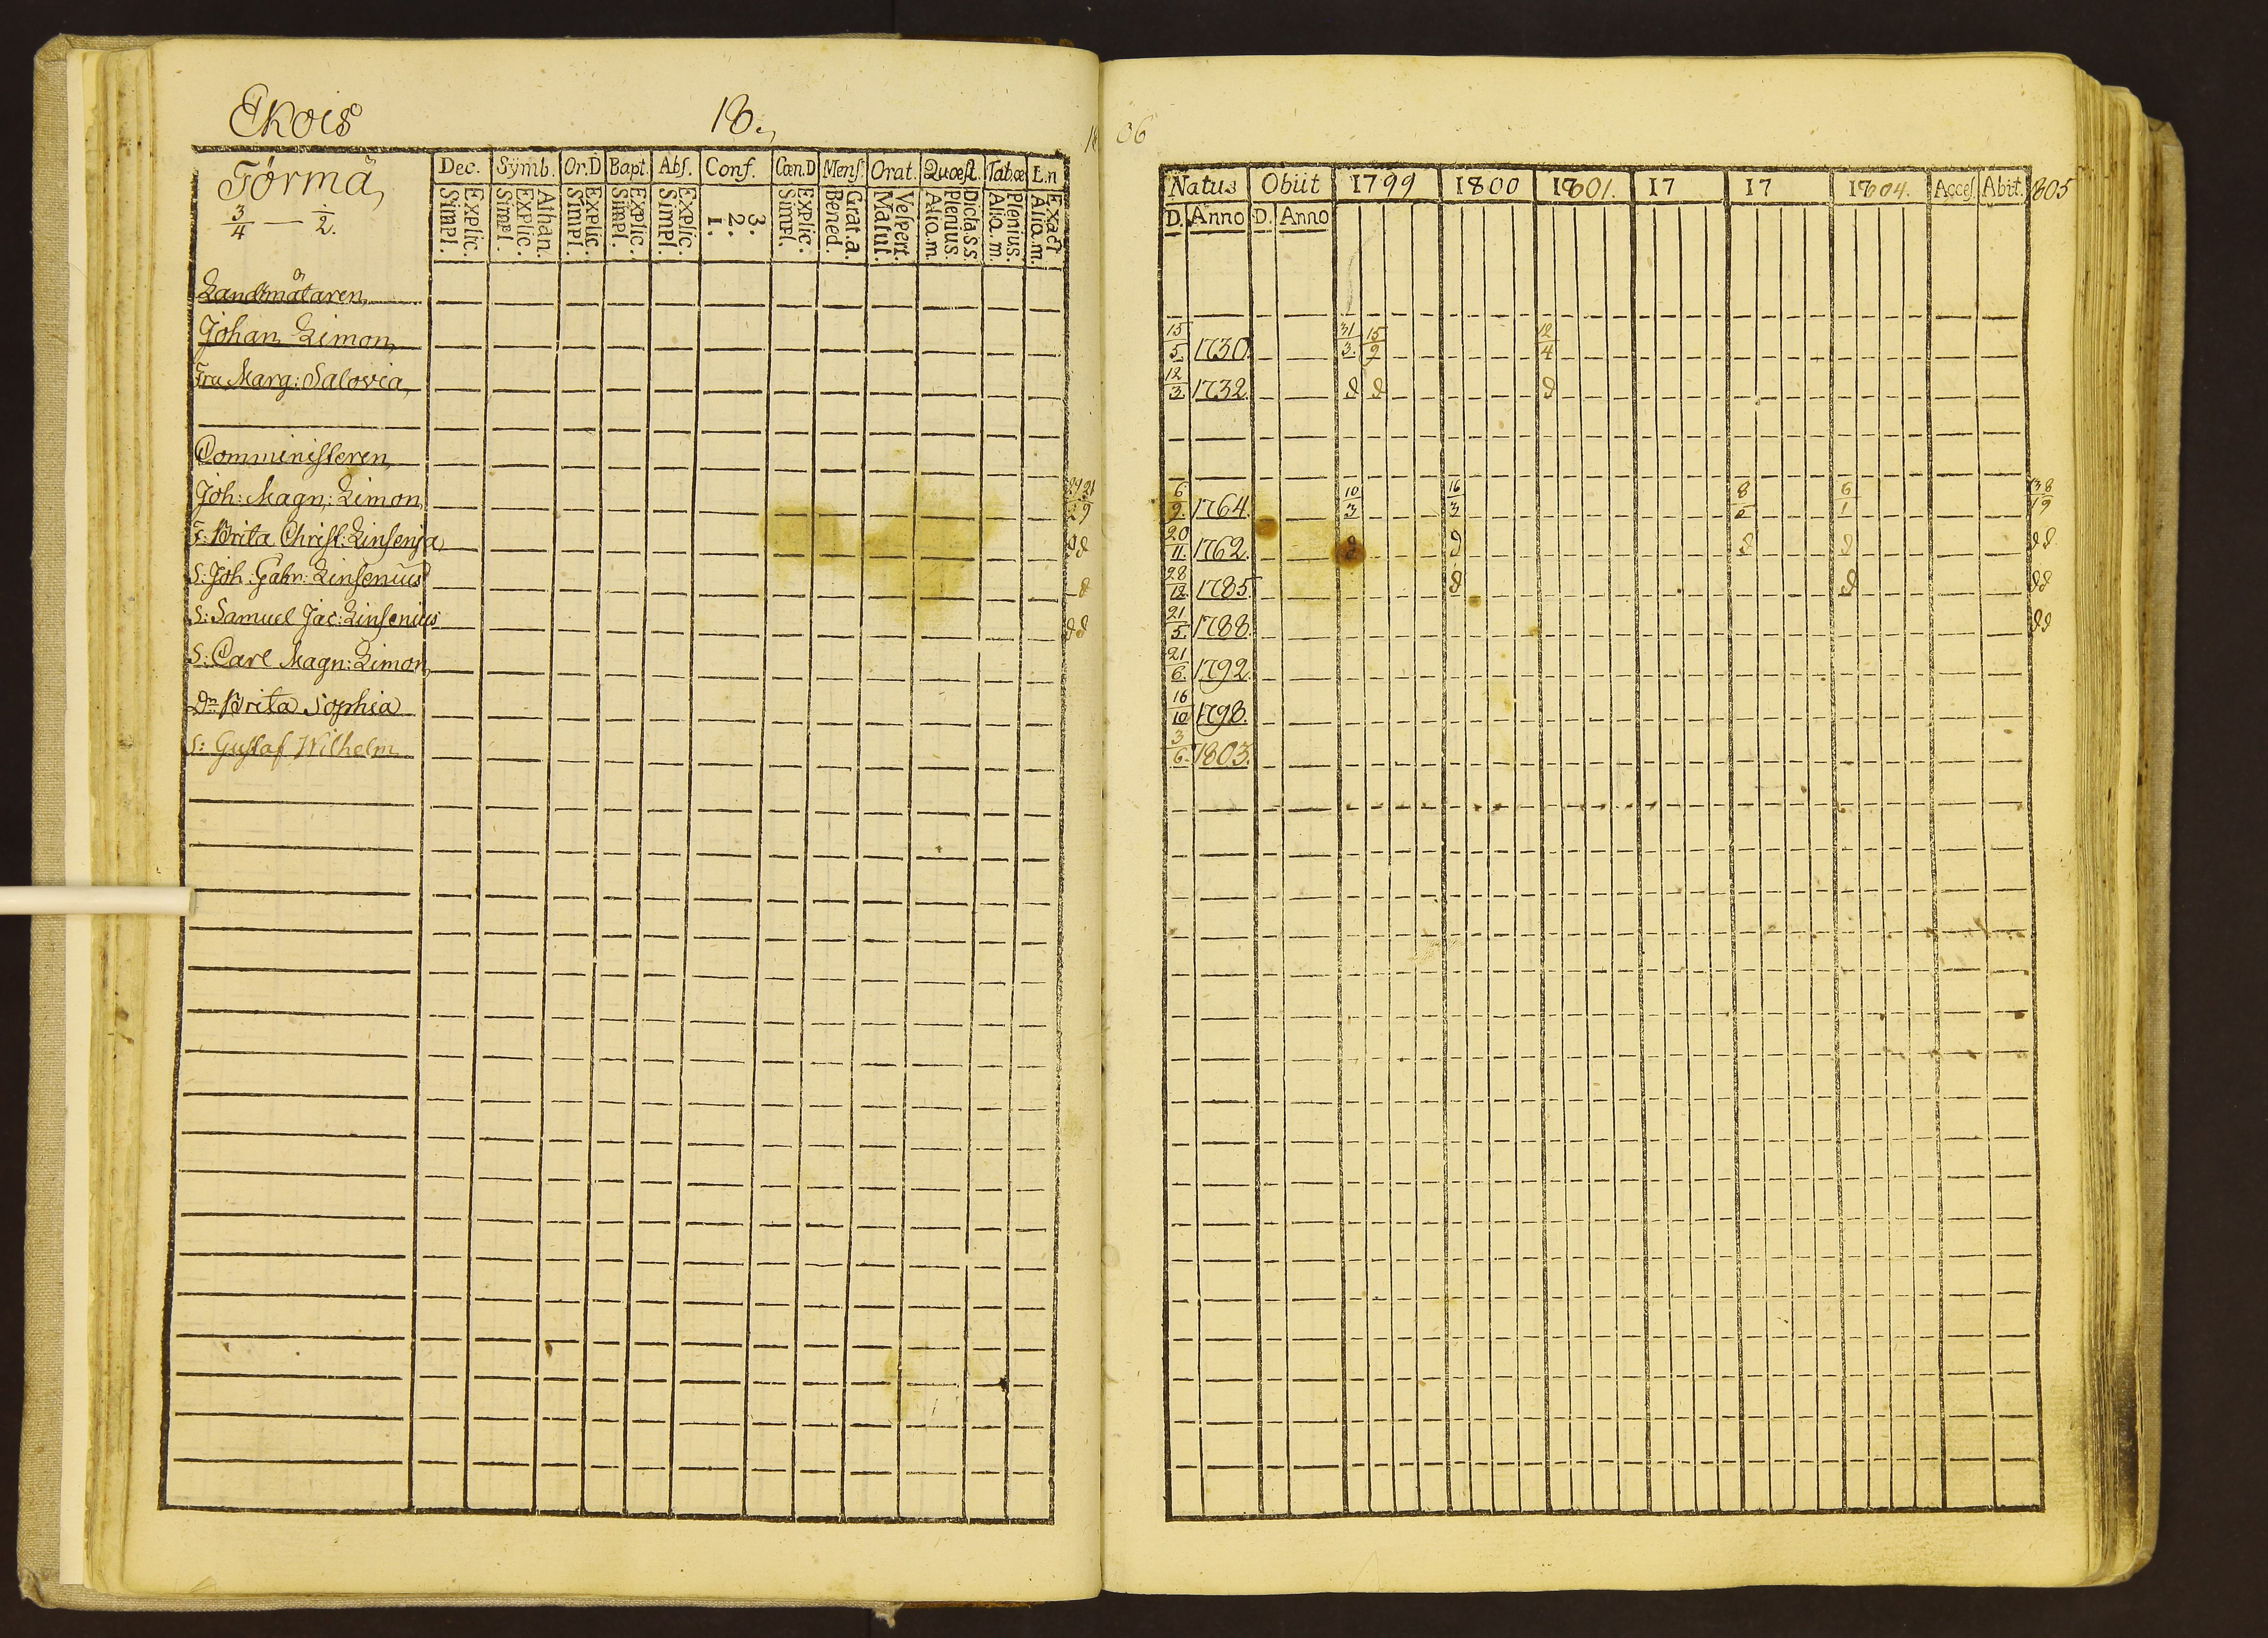 Ekois 18.
Törmä
3/4 — 1/2.
Dec. Symb. Or.D Bapt. Abs. Conf. Cœn.D Mens. Orat. Quœst. Tab.œ L.n
Simpl. Explic. Simpl. Explic. Athan. Simpl. Explic. Simpl. Explic. Simpl. Explic. 1. 2. 3. Simpl. Explic. Bened. Grat:a. Matut. Vespert. Aliq.m. Plenius. Dicta S.S. Aliq.m. Plenius. Aliq.m. Exact
Landtmätaren
Johan Limon
Fru Marg: Salovia
Comministeren
Joh: Magn: Limon 21/9
F: Brita Christ: Linsenia d d
S: Joh: Gabr: Linsenius – d
S: Samuel Jac: Linsenius d d
S: Carl Magn: Limon
Dr Brita Sophia
S: Gustaf Wilhelm
18 06
Natus Obiit 1799 1800 1801. 17 17 1804. Acces. Abit. 1805
D. Anno D. Anno
15/5 1730. 31/3. 15/9 12/4
12/3 1732. d d d
6/9. 1764. 10/3 16/3 6/1
20/11. 1762. d d d d d d
28/12 1785. d d d d
21/5. 1788. d d
21/6. 1792.
16/10 1798.
3/6. 1803.